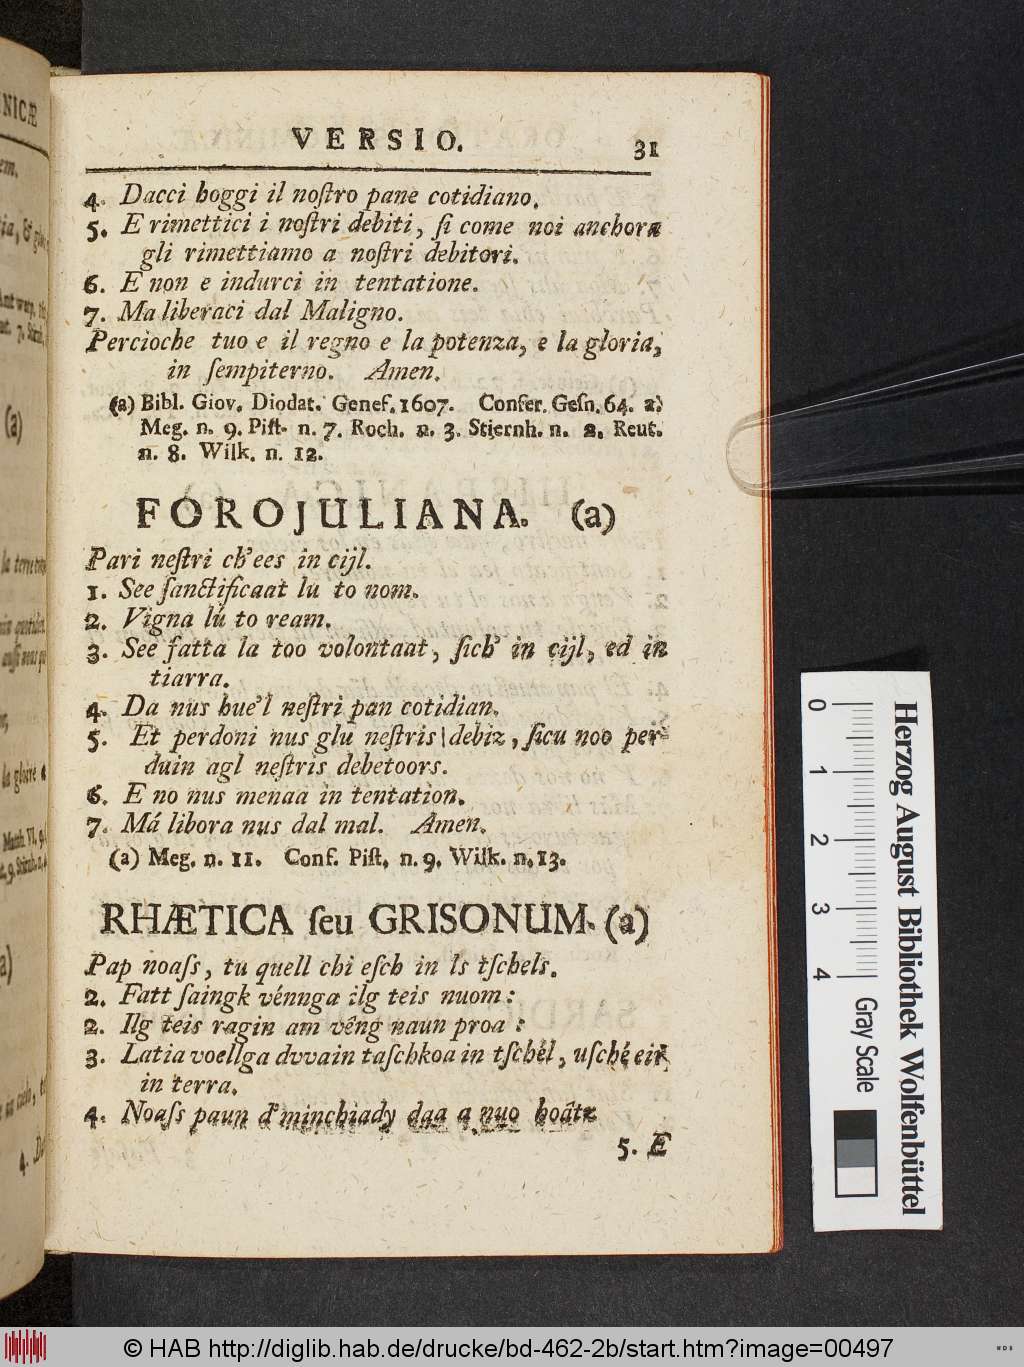 VERSIO. 31
4. Dacci hoggi il noſtro pane cotidiano.
5. E rimettici i noſtri debiti, ſi come noi anchora
gli rimettiamo a noſtri debitori.
6. E non e indurci in tentatione.
7. Ma liberaci dal Maligno.
Percioche tuo e il regno e la potenza, e la gloria,
in ſempiterno. Amen.
(a) Bibl. Giov. Diodat. Geneſ. 1607. Confer. Geſn. 64. a.
Meg. n. 9. Piſt. n. 7. Roch. n. 3. Stiernh. n. 2. Reut.
n. 8. Wilk. n. 12.
FOROJULIANA. (a)
Pari neſtri ch'ees in cijl.
1. See ſanctificaat lu to nom.
2. Vigna lu to ream.
3. See fatta la too volontaat, ſich' in cijl, ed in
tiarra.
4. Da nus hue'l neſtri pan cotidian.
5. Et perdoni nus glu neſtris debiz, ſicu noo per-
duin agl neſtris debetoors.
6. E no nus menaa in tentation.
7. Má libora nus dal mal. Amen.
(a) Meg. n. 11. Conf. Piſt. n. 9. Wilk. n. 13.
RHÆTICA ſeu GRISONUM. (a)
Pap noaſs, tu quell chi eſch in ls tſchels.
2. Fatt ſaingk vénnga ilg teis nuom:
2. Ilg teis ragin am vêng naun proa:
3. Latia voellga dvvain taſchkoa in tſchél, uſché eir
in terra.
4. Noaſs paun d'minchiady daa a nuo hoâtz
5. E
NICÆ
em.
(a)
la gloire
Matth. VI. 9.
0 1 2 3 4
Gray Scale
Herzog August Bibliothek Wolfenbüttel
© HAB http://diglib.hab.de/drucke/bd-462-2b/start.htm?image=00497